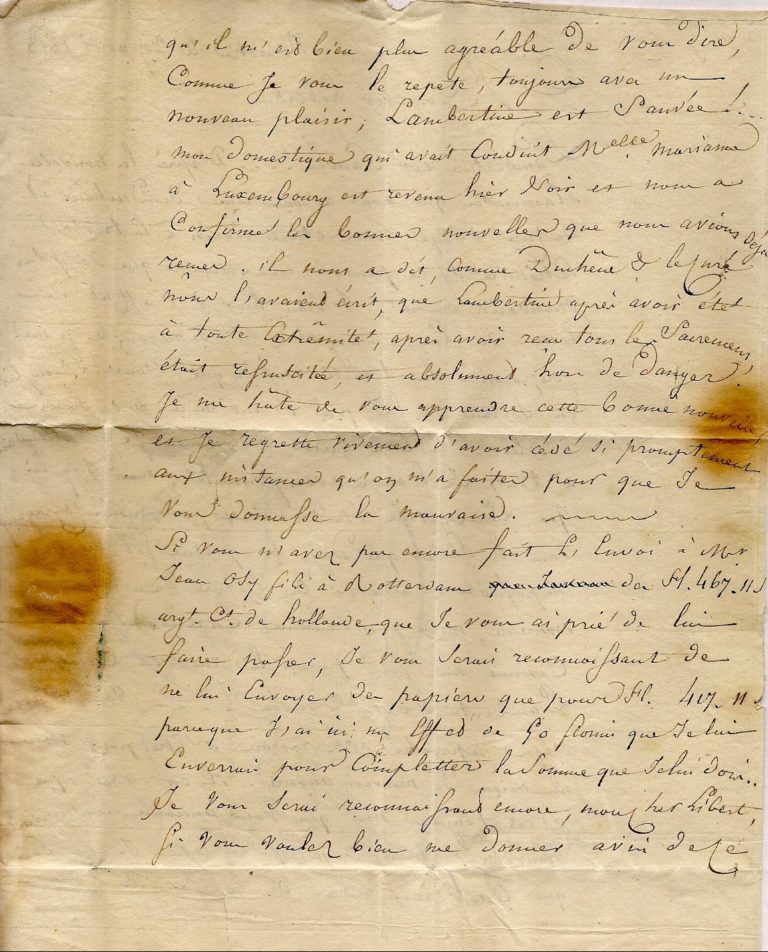 qu'il m'est bien plus agréable de vous dire,
Comme Je vous le repete, toujours avec un
nouveau plaisir, Lambertine est Sauvée !...
mon domestique qui avait Conduit Melle. Marianne
à Luxembourg est revenu hier Soir et nous a
Confirmé les bonnes nouvelles que nous avions déjà
reçues. il nous a dit, comme Duchêne & le Curé
nous l'avaient écrit, que Lambertine après avoir été
à toute Extrêmité, après avoir reçu tous les Sacremens,
était resfuscitée, et absolument hors de danger.
Je me hâte de vous apprendre cette bonne nouvelle
et Je regrette vivement d'avoir cédé si promptement
aux instances qu'on m'a faites pour que Je
Vous donnasse la mauvaise.
Si vous n'avez pas encore fait L'Envoi à Mr
Jean Osy fils à Rotterdam de fl. 467.11 s
argt. Ct. de hollande, que Je vous ai prié de lui
faire passer, Je vous Serais reconnoissant de
ne lui Envoyer du papier que pour fl. 417.11 s
parceque J'ai ici un Effet de 50 florins que Je lui
Enverrai pour Completter la Somme que Je lui dois..
Je Vous Serai reconnaissant encore, mon cher Libert,
Si Vous Voulez bien me donner avis de Ce